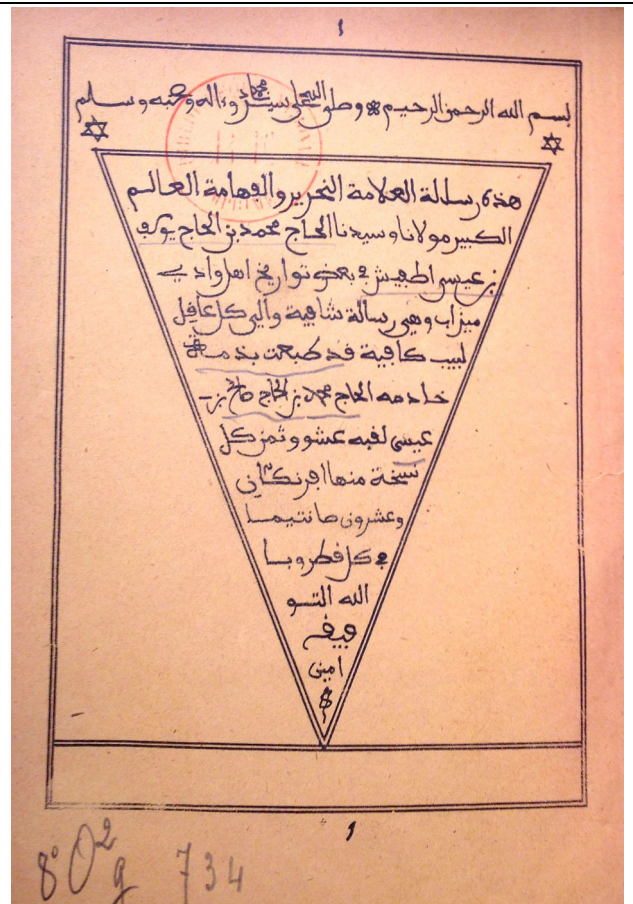 1
بسم الله الرحمن الرحيم وصلى الله على سيدنا محمد وءاله وصحبه وسلم
هذه رسالة العلامة النحرير والفهامة العالم
الكبير مولانا وسيدنا الحاج محمد بن الحاج يوسف
بن عيسى اطفيش في بعض تواريخ اهل وادي
ميزاب وهي رسالة شافية والى كل عاقل
لبيب كافية قد طبعت بذمة
خادمه الحاج محمد بن الحاج صالح بن
عيسى لقبه عشو وثمن كل
نسخة منها افرنكان
وعشرون صانتيما
في كل قطر وبا
الله التو
فيق
امين
1
8° O² g 734